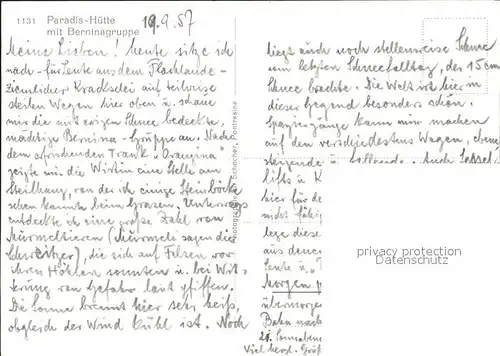 1131 Paradis-Hütte
mit Berninagruppe
19.9.57
Meine Lieben! heute sitze ich
nach - für Leute aus dem Flachlande -
ziemlicher Kraxselei auf teilweise
steilen Wegen hier oben u. schaue
mir die mit ewigen Schnee bedeckte,
mächtige Bernina-Gruppe an. Nach
dem erfrischenden Trank „Orangina"
zeigte mir die Wirtin eine Stelle am
Steilhang, von der ich einige Steinböcke
sehen konnte beim Grasen. Unterwegs
entdeckte ich eine große Zahl von
Murmeltieren (Murmeli sagen die
Schweitzer), die sich auf Felsen vor
ihren Höhlen sonnten u. bei Wit-
terung von Gefahr laut pfiffen.
Die Sonne brennt hier sehr heiß,
obgleich der Wind kühl ist. Noch
Schocher, Pontresina
liegt auch noch stellenweise Schnee
vom letzten Schneefalltag, der 15 cm
Schnee brachte. Die Welt ist hier in
dieser Gegend besonders schön.
Spaziergänge kann mir machen
auf den verschiedensten Wegen, ebene
steigende u. fallende. Auch Sessel-
lifts u. K
hier für de
nicht fähig
lege diese
aus denen
Leute u. „
Morgen
übermorgen
Bahn nach
21. Sonnabend
Viel herzl. Grüß
privacy protection
Datenschutz